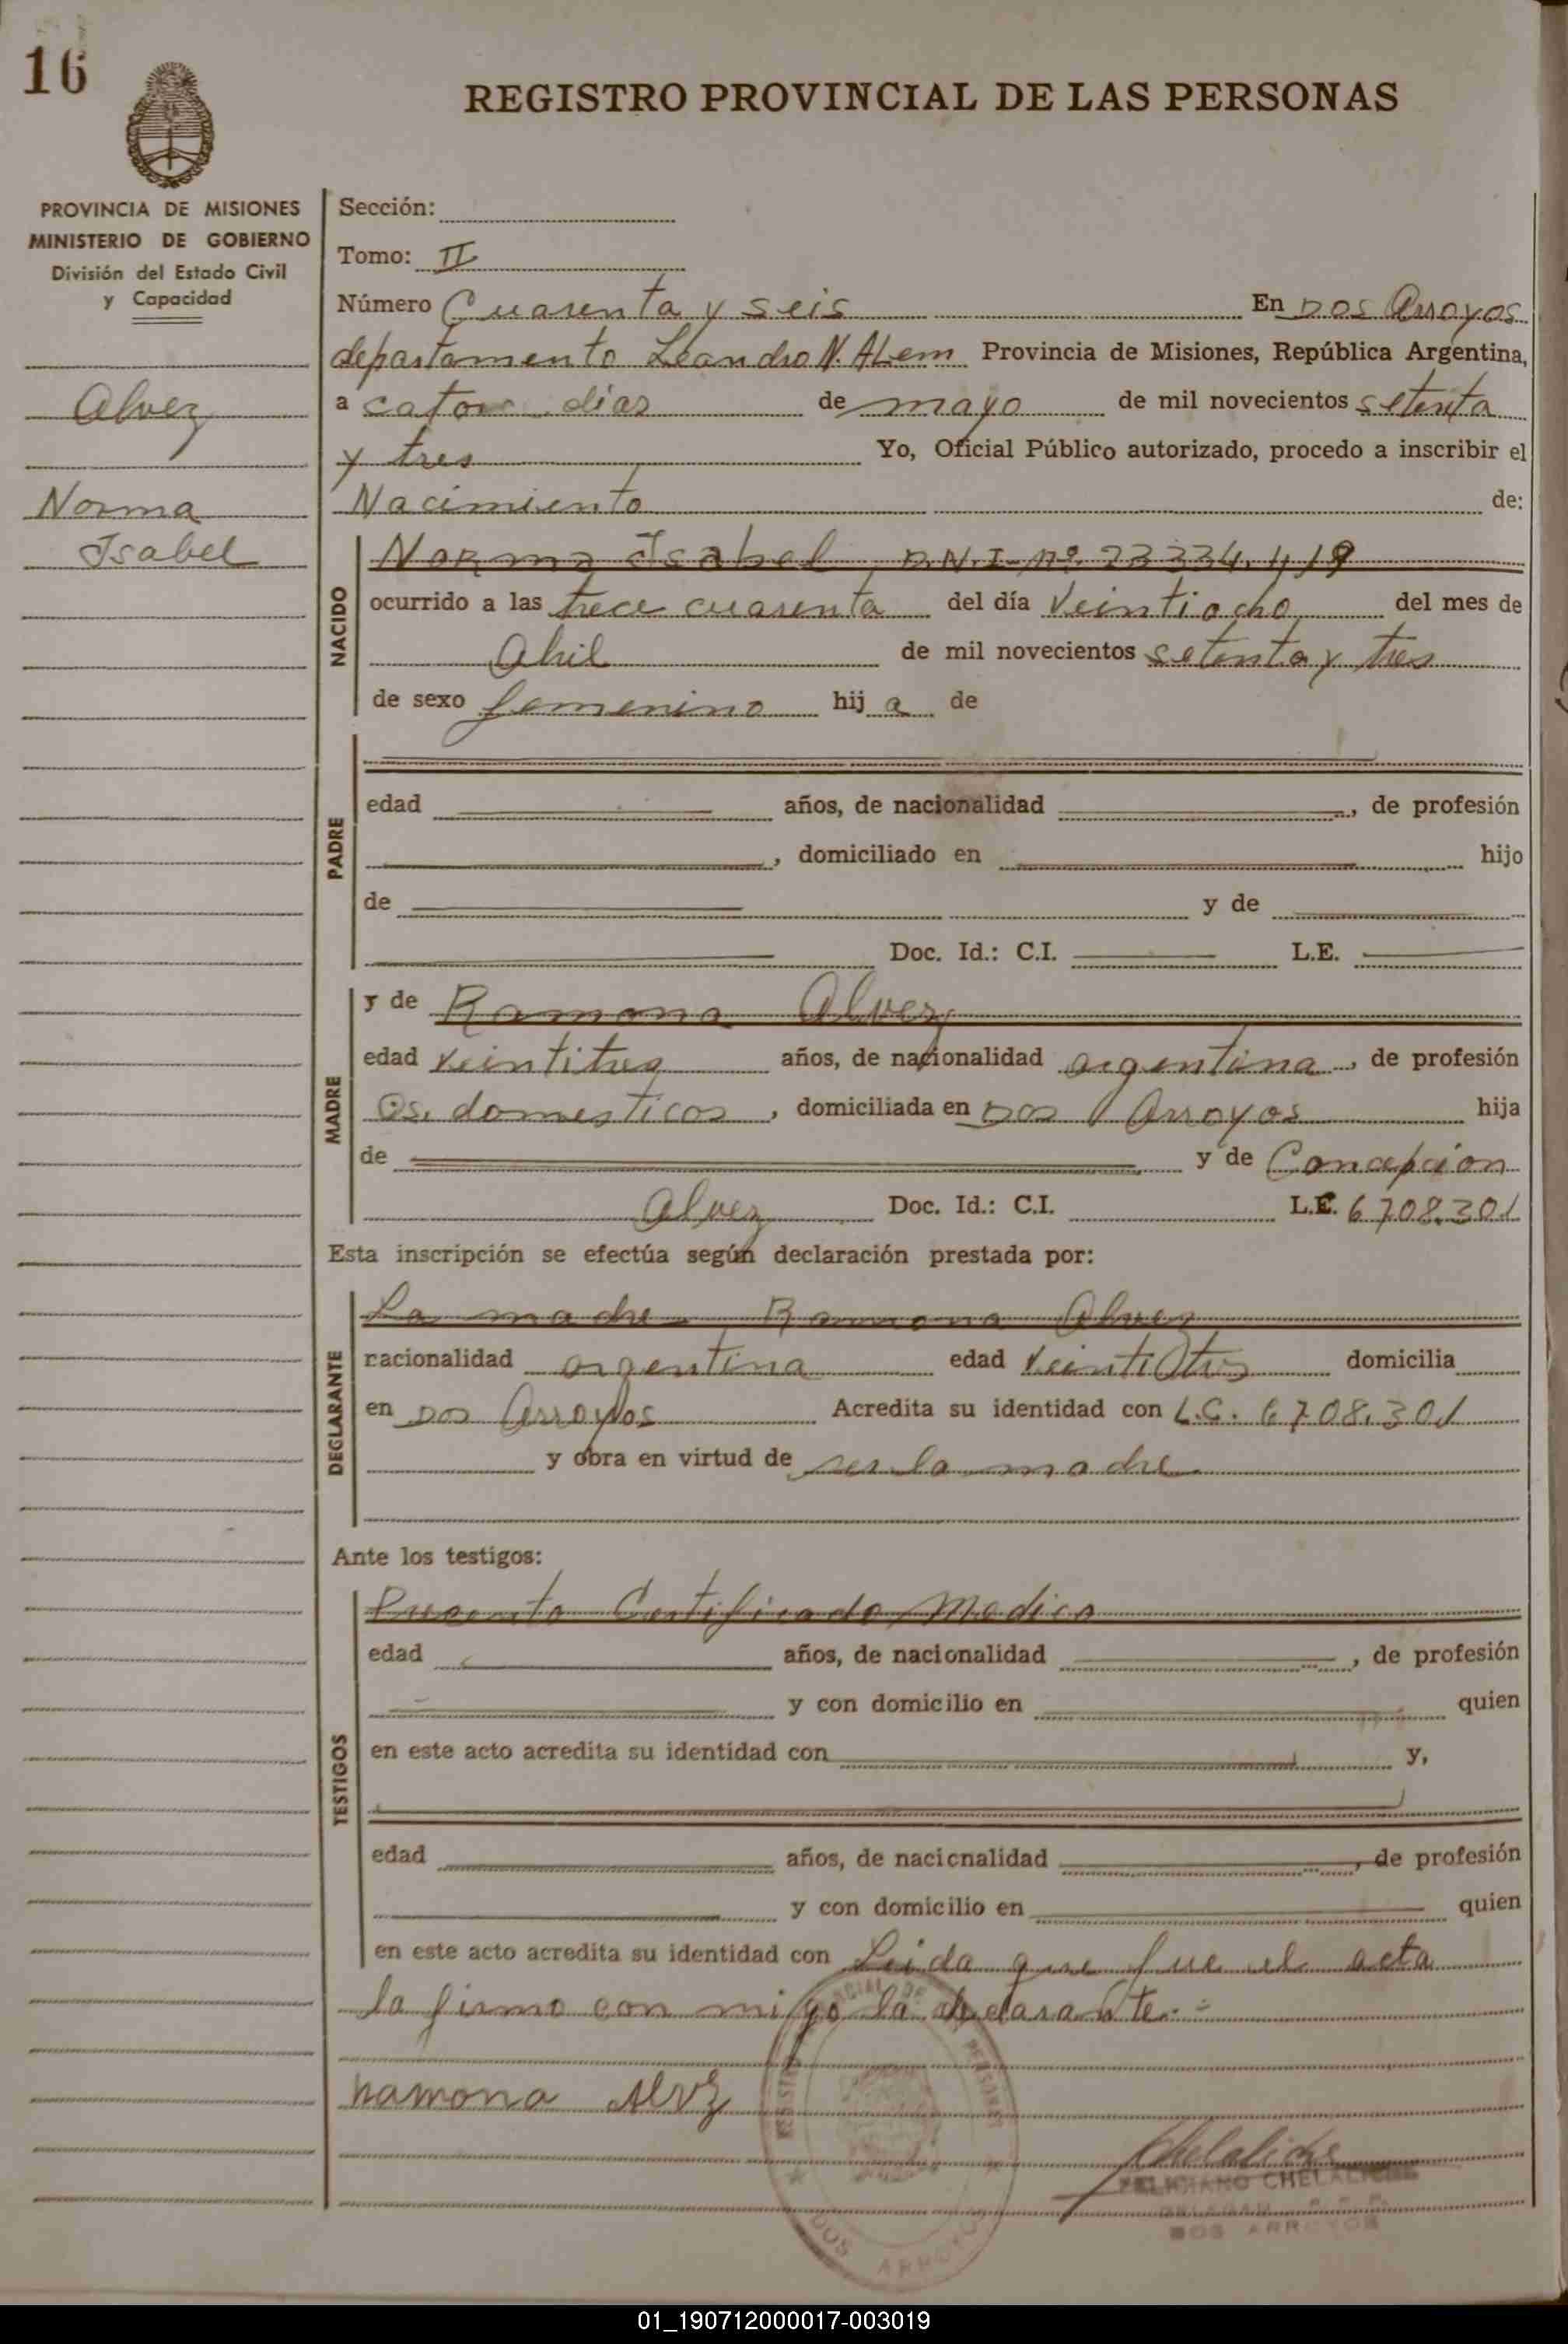 16
REGISTRO PROVINCIAL DE LAS PERSONAS
PROVINCIA DE MISIONES
MINISTERIO DE GOBIERNO
División del Estado Civil
y Capacidad
Alvez
Norma
Isabel
Sección:
Tomo: II
Número Cuarenta y seis En Dos Arroyos
departamento Leandro N. ALem Provincia de Misiones, República Argentina,
a catorce dias de mayo de mil novecientos setenta
y tres Yo, Oficial Público autorizado, procedo a inscribir el
Nacimiento de:
NACIDO
Norma Isabel D.N.I-nº. 23334.419
ocurrido a las trece cuarenta del día Veintiocho del mes de
Abril de mil novecientos setenta y tres
de sexo femenino hij a de
PADRE
edad años, de nacionalidad , de profesión
, domiciliado en hijo
de y de
Doc. Id.: C.I. L.E.
MADRE
y de Ramona Alvez
edad veintitres años, de nacionalidad argentina , de profesión
Qs. domesticos , domiciliada en Dos Arroyos hija
de y de Concepcion
Alvez Doc. Id.: C.I. L.C. 6708.301
Esta inscripción se efectúa según declaración prestada por:
DECLARANTE
La madre Ramona Alvez
racionalidad argentina edad Veintitres domicilia
en Dos Arroyos Acredita su identidad con L.C. 6708.301
y obra en virtud de ser la madre
Ante los testigos:
TESTIGOS
Presento Certificado Medico
edad años, de nacionalidad , de profesión
y con domicilio en quien
en este acto acredita su identidad con y,
edad años, de nacicnalidad , de profesión
y con domicilio en quien
en este acto acredita su identidad con Leida que fue el acta
la firmo con migo la declarante.-
Ramona Alvz
FELICIANO CHELALICHE
DOS ARROYOS
DOS ARROYOS
01_190712000017-003019